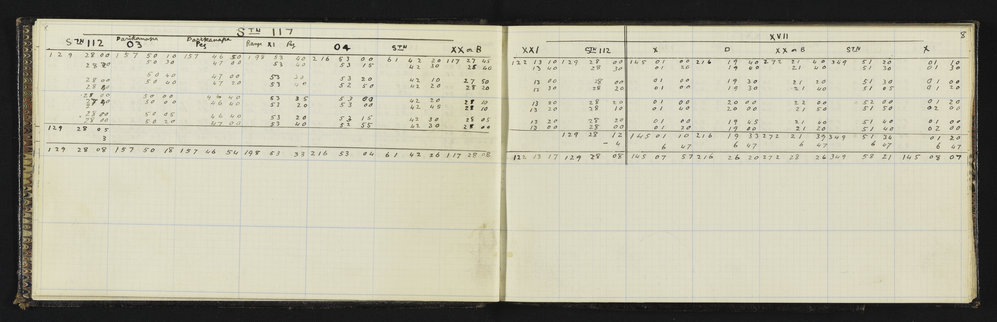 STN 117
STN 112 Parikanapa 03 Parikanapa Peg Range XI Peg 04 STN XX or B
129 28 00 157 50 10 157 46 50 198 53 40 216 53 00 61 42 20 117 27 45
50 30 47 00 53 40 53 15 42 30 28 40
50 40 47 00 53 20 42 10 27 50
28 00 50 40 47 20 53 40 52 50 42 20 28 20
28 00 50 00 46 40 53 35 53 00 42 20 28 10
50 00 46 40 53 20 53 00 42 45 28 10
28 00 50 05 46 40 53 20 53 15 42 30 28 05
28 00 50 20 47 00 53 40 52 55 42 30 28 00
129 28 05
3
129 28 08 157 50 18 157 46 54 198 53 33 216 53 04 61 42 26 117 28 08
8
XVII
XXI STN 112 X D XX or B STN X
122 13 10 129 28 00 145 01 00 216 19 40 272 21 40 349 51 20 01 30
13 40 28 30 01 20 19 00 21 40 51 30 01 30
13 00 28 00 01 00 19 30 21 20 51 30 01 00
13 30 28 20 01 00 19 40 21 40 51 05 01 20
13 00 28 20 01 00 20 00 22 00 52 00 01 20
13 20 28 10 01 40 20 00 21 50 51 50 02 00
13 20 28 20 01 00 19 45 21 40 51 40 01 00
13 00 28 00 01 20 19 00 21 20 51 40 02 00
129 28 12 145 01 10 216 19 33 272 21 39 349 51 34 01 20
- 4 6 47 6 47 6 47 6 47 6 47
122 13 17 129 28 08 145 07 57 216 26 20 272 28 26 349 58 21 145 08 07